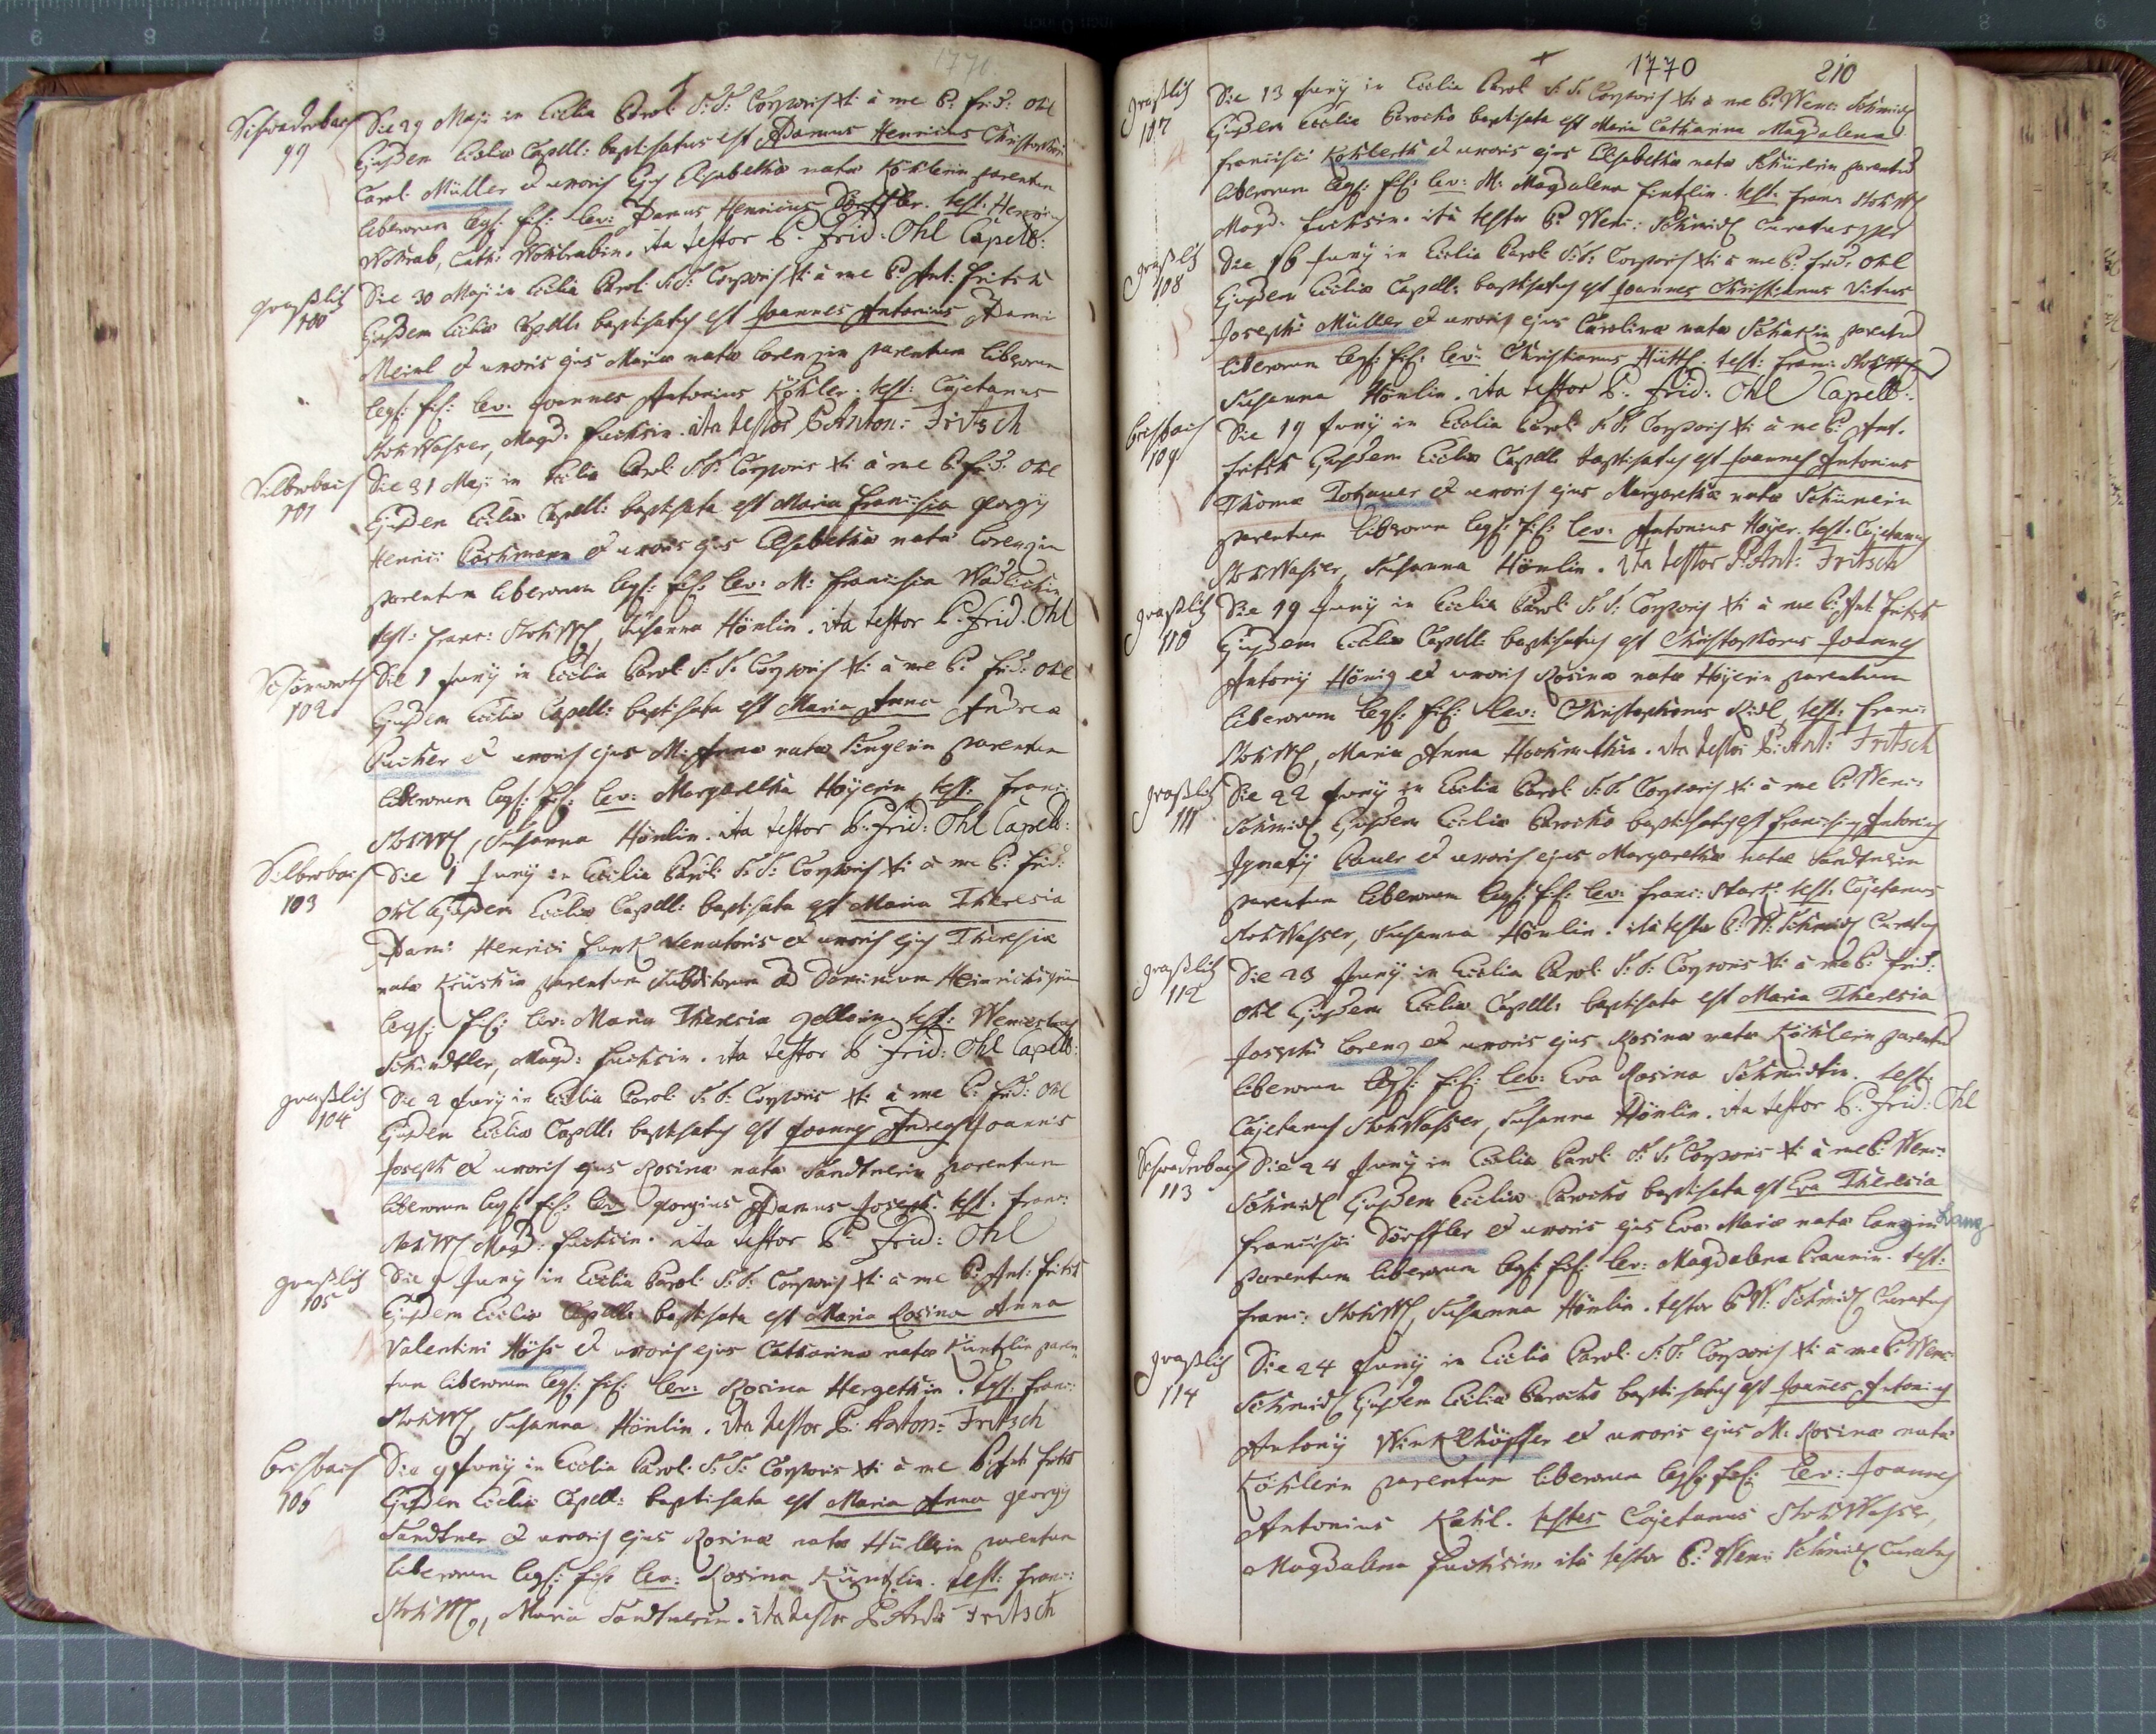 1770.
Schwaderbach Die 29 Maji in Ecclia Paroli S: S: Corporis Xti à me P: Frid: Ohl
99 Ejusdem Eccliæ Capell: baptisatus est Adamus Henricus Christophori
Caroli Müller et uxoris Ejus Elisabethæ natæ Köhlerin parentum
liberorum legs: fis: lev: Adamus Henricus Dörffler. test: Henricus
Wohlrab, Cath: Wohlrabin. ita testor P. Frid: Ohl Capell:
graßlitz Die 30 Maji in Ecclia Paroli S: S: Corporis Xti à me P: Ant: Fritsch
100 Ejusdem Eccliæ Capell: baptisatus est Joannes Antonius Adami
Meinl et uxoris ejus Mariæ natæ Lorenzin parentum liberorum
legs: fis: lev: Joannes Antonius Köhler. test: Cajetanus
StohWasser, Magd. Fuchsin. ita testor P. Anton: Fritsch
Silberbach Die 31 Maji in Ecclia Paroli S: S: Corporis Xti à me P: Frid: Ohl
101 Ejusdem Eccliæ Capell: baptisata est Maria Francisca georgij
Henrici Pöschmann et uxoris ejus Elisabethæ natæ Lorenzin
parentum liberorum legs: fis: lev: M: Francisca
test: Franc: StohW, Susanna Hönlin. ita testor P. Frid. Ohl
Schönwerth Die 1 Junij in Ecclia Paroli S: S: Corporis Xti à me P: Frid: Ohl
102 Ejusdem Eccliæ Capell: baptisata est Maria Anna Andreæ
Pucher et uxoris ejus M: Annæ natæ Singerin parentum
liberorum legs: fis: lev: Margaretha Höyerin, test: Franc:
StohW, Susanna Hönlin. ita testor P: Frid: Ohl Capell:
Silberbach Die 1 Junij in Ecclia Paroli S: S: Corporis Xti à me P: Frid:
103 Ohl Ejusdem Eccliæ Capell: baptisata est Maria Theresia
Adami Henrici Funk Venatoris et uxoris ejus Theresiæ
natæ parentum Subditorum ad Dominium Heinrichsgrün
legs: fis: lev: Maria Theresia test: Wenceslaus
Schindtler, Magd: Fuchsin. ita testor P Frid: Ohl Capell:
graßlitz Die 2 Junij in Ecclia Paroli S: S: Corporis Xti à me P: Frid: Ohl
104 Ejusdem Eccliæ Capell: baptisatus est Joannes Andreas Joannis
Joseph et uxoris ejus Rosinæ natæ Sandtnerin parentum
liberorum legs: fis: lev: georgius Adamus Joseph. test: Franc:
StohW, Magd: Fuchsin. ita testor P. Frid: Ohl
graßlitz Die 9 Junij in Ecclia Paroli S: S: Corporis Xti à me P: Ant: Fritsch
105 Ejusdem Eccliæ Capell: baptisata est Maria Rosina Anna
Valentini Höss et uxoris ejus Catharinæ natæ Kuntzlin paren
tum liberorum legs: fis: lev: Rosina Hergethin. test: Franc:
StohW, Susanna Hönlin. ita testor P: Anton: Fritsch
Die 9 Junij in Ecclia Paroli S: S: Corporis Xti à me P: Ant: Fritsch
106 Ejusdem Eccliæ Capell: baptisata est Maria Anna georgij
Sandtner et uxoris ejus Rosinæ natæ Hüllerin parentum
liberorum legs: fis: lev: Rosina Küntzlin. test: Franc:
StohW, Maria Sandtnerin. ita testor P. Ant: Fritsch
1770 210
graßlitz Die 13 Junij in Ecclia Paroli S: S: Corporis Xti à me P: Wenc: Schmidt
107 Ejusdem Eccliæ Parocho baptisata est Maria Catharina Magdalena
Francisci Köhlerth et uxoris ejus Elisabethæ natæ parentum
liberorum legs: fis: lev: M: Magdalena test: Franc StohW
Magd. Fuchsin. ità testor P: Wenc: Schmidt Curatus
graßlitz Die 16 Junij in Ecclia Paroli S: S: Corporis Xti à me P: Frid: Ohl
108 Ejusdem Eccliæ Capell: baptisatus est Joannes Christianus Vitus
Josephi Müller et uxoris ejus Carolinæ natæ parentum
liberorum legs: fis: lev: Christianus Hüttl. test: Franc: StohW
Susanna Hönlin. ita testor P. Frid: Ohl Capell:
Die 19 Junij in Ecclia Paroli S: S: Corporis Xti à me P: Ant.
109 Fritsch Ejusdem Eccliæ Capell: baptisatus est Joannes Antonius
Thomæ Tohauer et uxoris ejus Margarethæ natæ
parentum liberorum legs: fis: lev: Antonius Höyer. test: Cajetanus
StohWasser, Susanna Hönlin. ita testor P. Ant: Fritsch
graßlitz Die 19 Junij in Ecclia Paroli S: S: Corporis Xti à me P: Ant Fritsch
110 Ejusdem Eccliæ Capell: baptisatus est Christophorus Joannes
Antonij Hönig et uxoris Rosinæ natæ Höyerin parentum
liberorum legs: fis: lev: Christophorus Riedl, test: Franc:
StohW, Maria Anna Hochmuthin. ita testor P: Ant: Fritsch
graßlitz Die 22 Junij in Ecclia Paroli S: S: Corporis Xti à me P: Wenc:
111 Schmidt Ejusdem Eccliæ Parocho baptisatus est Franciscus Antonius
Ignatij Pauer et uxoris ejus Margarethæ natæ Sandtnerin
parentum liberorum legs: fis: lev: Franc: Stark. test: Cajetanus
StohWasser, Susanna Hönlin. ità testor P: W: Schmidt Curatus
graßlitz Die 23 Junij in Ecclia Paroli S: S: Corporis Xti à me P: Frid:
112 Ohl Ejusdem Eccliæ Capell: baptisata est Maria Theresia
Josephi Lorenz et uxoris ejus Rosinæ natæ Köhlerin parentum
liberorum legs: fis: lev: Eva Rosina Schmidtin. test:
Cajetanus StohWasser, Susanna Hönlin. ita testor P. Frid: Ohl
Schwaderbach Die 24 Junij in Ecclia Paroli S: S: Corporis Xti à me P: Wenc:
113 Schmidt Ejusdem Eccliæ Parocho baptisata est Eva Theresia
Francisci Dörffler et uxoris ejus Evæ Mariæ natæ Langin Lang
parentum liberorum legs: fis: lev: Magdalena Braunin. test:
Franc: StohW, Susanna Hönlin. testor P W: Schmidt Curatus
graßlitz Die 24 Junij in Ecclia Paroli S: S: Corporis Xti à me P: Wenc:
114 Schmidt Ejusdem Eccliæ Parocho baptisatus est Joannes Antonius
Antonij Winkelhöffer et uxoris ejus M: Rosinæ natæ
Köhlerin parentum liberorum legs: fis: lev: Joannes
Antonius Kahl. testes Cajetanus StohWasser,
Magdalena Fuchsin. ità testor P: Wenc: Schmidt Curatus